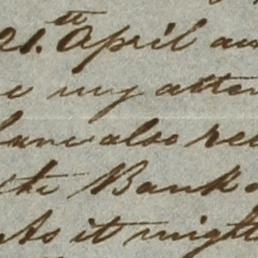 21.th April an
e my atten
have also rec
the Bank
As it might